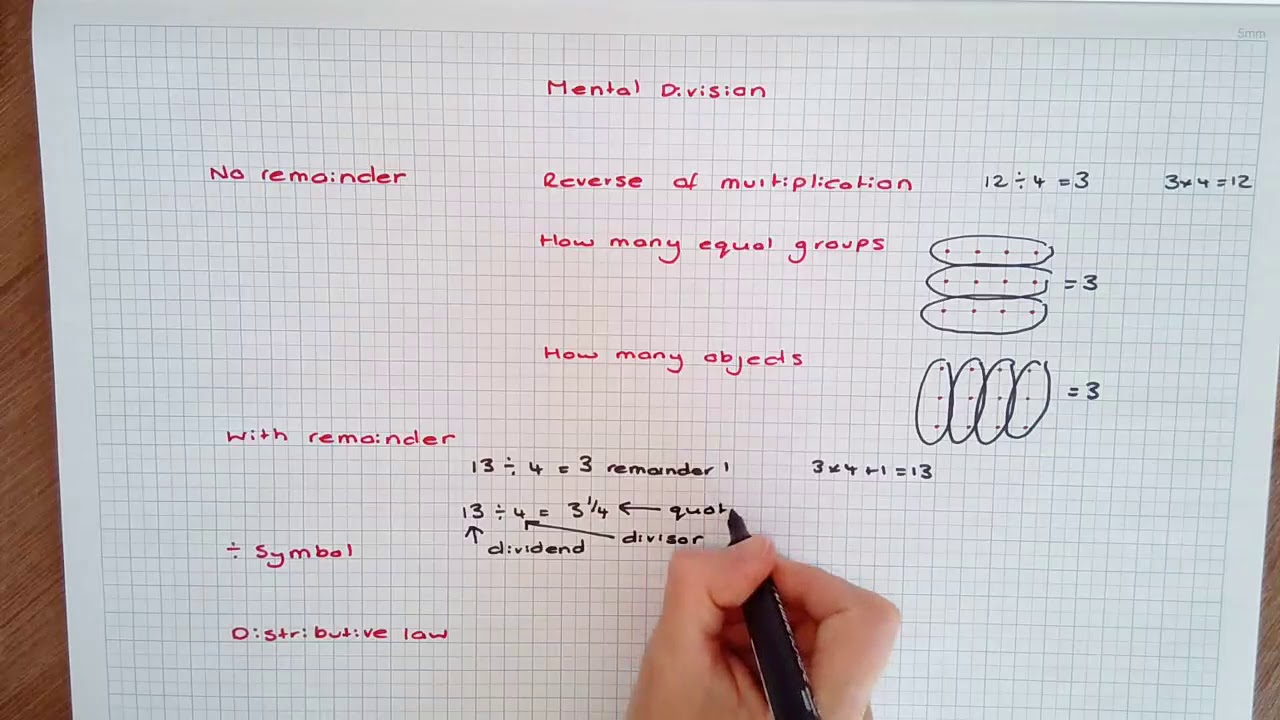 5mm
Mental Division
No remainder
Reverse of multiplication 12 ÷ 4 = 3 3 × 4 = 12
How many equal groups
= 3
How many objects
= 3
With remainder
13 ÷ 4 = 3 remainder 1 3 × 4 + 1 = 13
13 ÷ 4 = 3 1/4 ← quot
÷ Symbol
dividend divisor
Distributive law